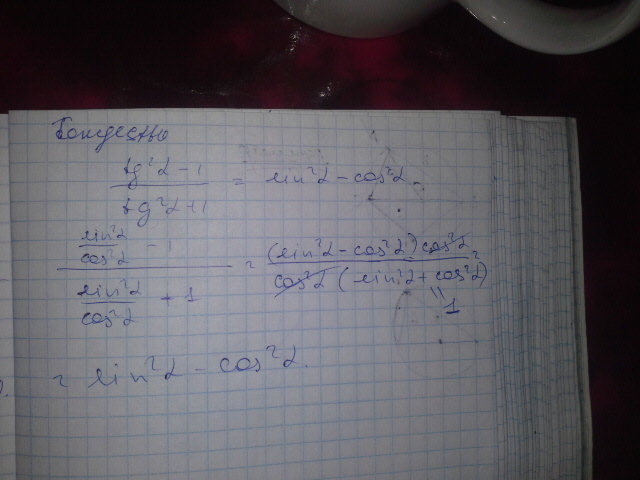 Тождество
tg²α - 1 / tg²α + 1 = sin²α - cos²α
(sin²α / cos²α - 1) / (sin²α / cos²α + 1) = (sin²α - cos²α) cos²α / cos²α (sin²α + cos²α) =
1
= sin²α - cos²α.